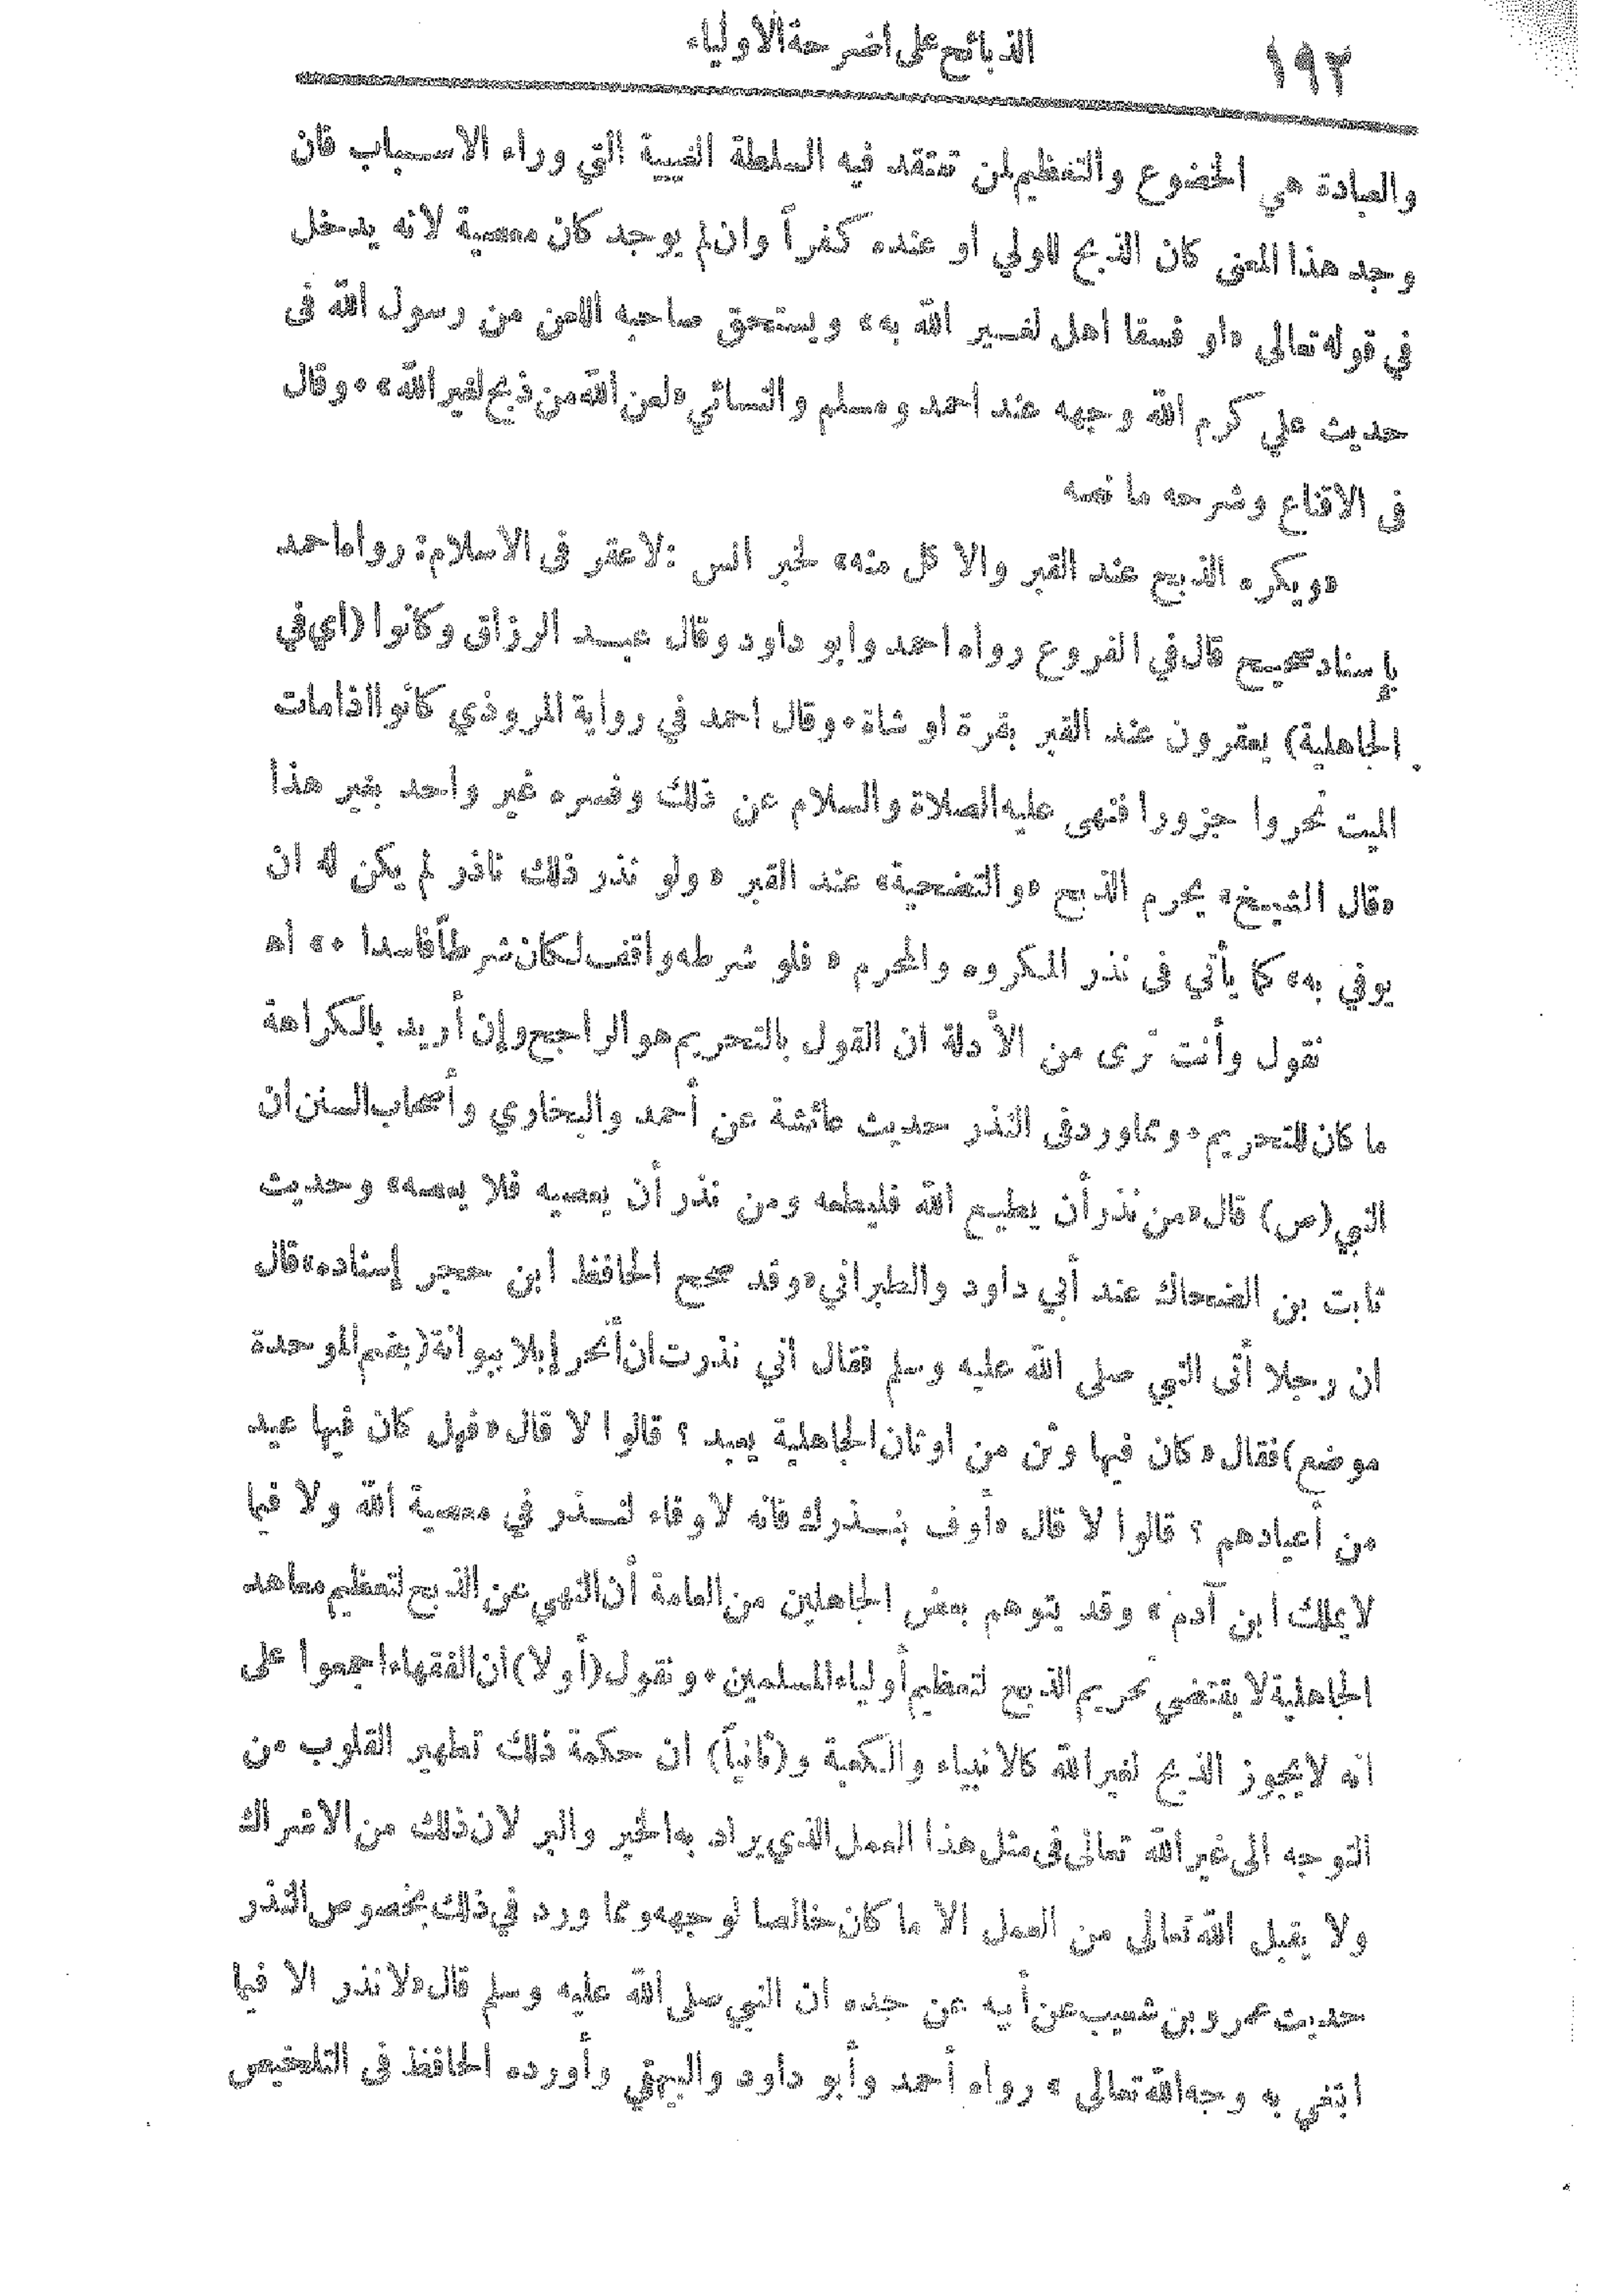 ١٩٢
الذبائح على اضرحة الاولياء
والعبادة هي الخضوع والتعظيم لمن تعتقد فيه السلطة الغيبية التي وراء الاسباب فان
وجد هذا المعنى كان الذبح للولي او عنده كفراً وان لم يوجد كان معصية لانه يدخل
في قوله تعالى «او فسقا اهل لغير الله به» ويستحق صاحبه اللعن من رسول الله فى
حديث علي كرم الله وجهه عند احمد ومسلم والنسائي «لعن الله من ذبح لغير الله» . وقال
فى الاقناع وشرحه ما نصه
«ويكره الذبح عند القبر والاكل منه» لخبر انس : لا عقر فى الاسلام : رواه احمد
بإسناد صحيح قال في الفروع رواه احمد وابو داود وقال عبد الرزاق وكانوا (اي في
الجاهلية) يعقرون عند القبر بقرة او شاة . وقال احمد في رواية المروذي كانوا اذا مات
الميت نحروا جزورا فنهى عليه الصلاة والسلام عن ذلك وفسره غير واحد بغير هذا
«قال الشيخ» يحرم الذبح «والتضحية» عند القبر «ولو نذر ذلك ناذر لم يكن له ان
يوفي به» كما يأتي فى نذر المكروه والمحرم «فلو شرطه واقف لكان شرطاً فاسدا .» اهـ
نقول وأنت ترى من الأدلة ان القول بالتحريم هو الراجح وإن أريد بالكراهة
ما كان للتحريم . ومما ورد فى النذر حديث عائشة عن أحمد والبخاري وأصحاب السنن ان
النبي (ص) قال «من نذر أن يطيع الله فليطعه ومن نذر أن يعصيه فلا يعصه» وحديث
ثابت بن الضحاك عند أبي داود والطبراني «وقد صحح الحافظ ابن حجر إسناده» قال
ان رجلا أتى النبي صلى الله عليه وسلم فقال اني نذرت ان أنحر إبلا ببوانة (بضم الموحدة
موضع) فقال «كان فيها وثن من اوثان الجاهلية يعبد ؟ قالوا لا قال «فهل كان فيها عيد
من أعيادهم ؟ قالوا لا قال «أوف بنذرك فانه لا وفاء لنذر في معصية الله ولا فيما
لا يملك ابن آدم» وقد يتوهم بعض الجاهلين من العامة أن النهي عن الذبح لتعظيم معاهد
الجاهلية لا يقتضي تحريم الذبح لتعظيم أولياء المسلمين . ونقول (أولا) ان الفقهاء اجمعوا على
انه لا يجوز الذبح لغير الله كالانبياء والكعبة و(ثانياً) ان حكمة ذلك تطهير القلوب من
التوجه الى غير الله تعالى فى مثل هذا العمل الذي يراد به الخير والبر لان ذلك من الاشراك
ولا يقبل الله تعالى من العمل الا ما كان خالصا لوجهه ومما ورد في ذلك بخصوص النذر
حديث عمرو بن شعيب عن أبيه عن جده ان النبي صلى الله عليه وسلم قال «لا نذر الا فيما
ابتغي به وجه الله تعالى» رواه أحمد وأبو داود والبيهقي وأورده الحافظ فى التلخيص